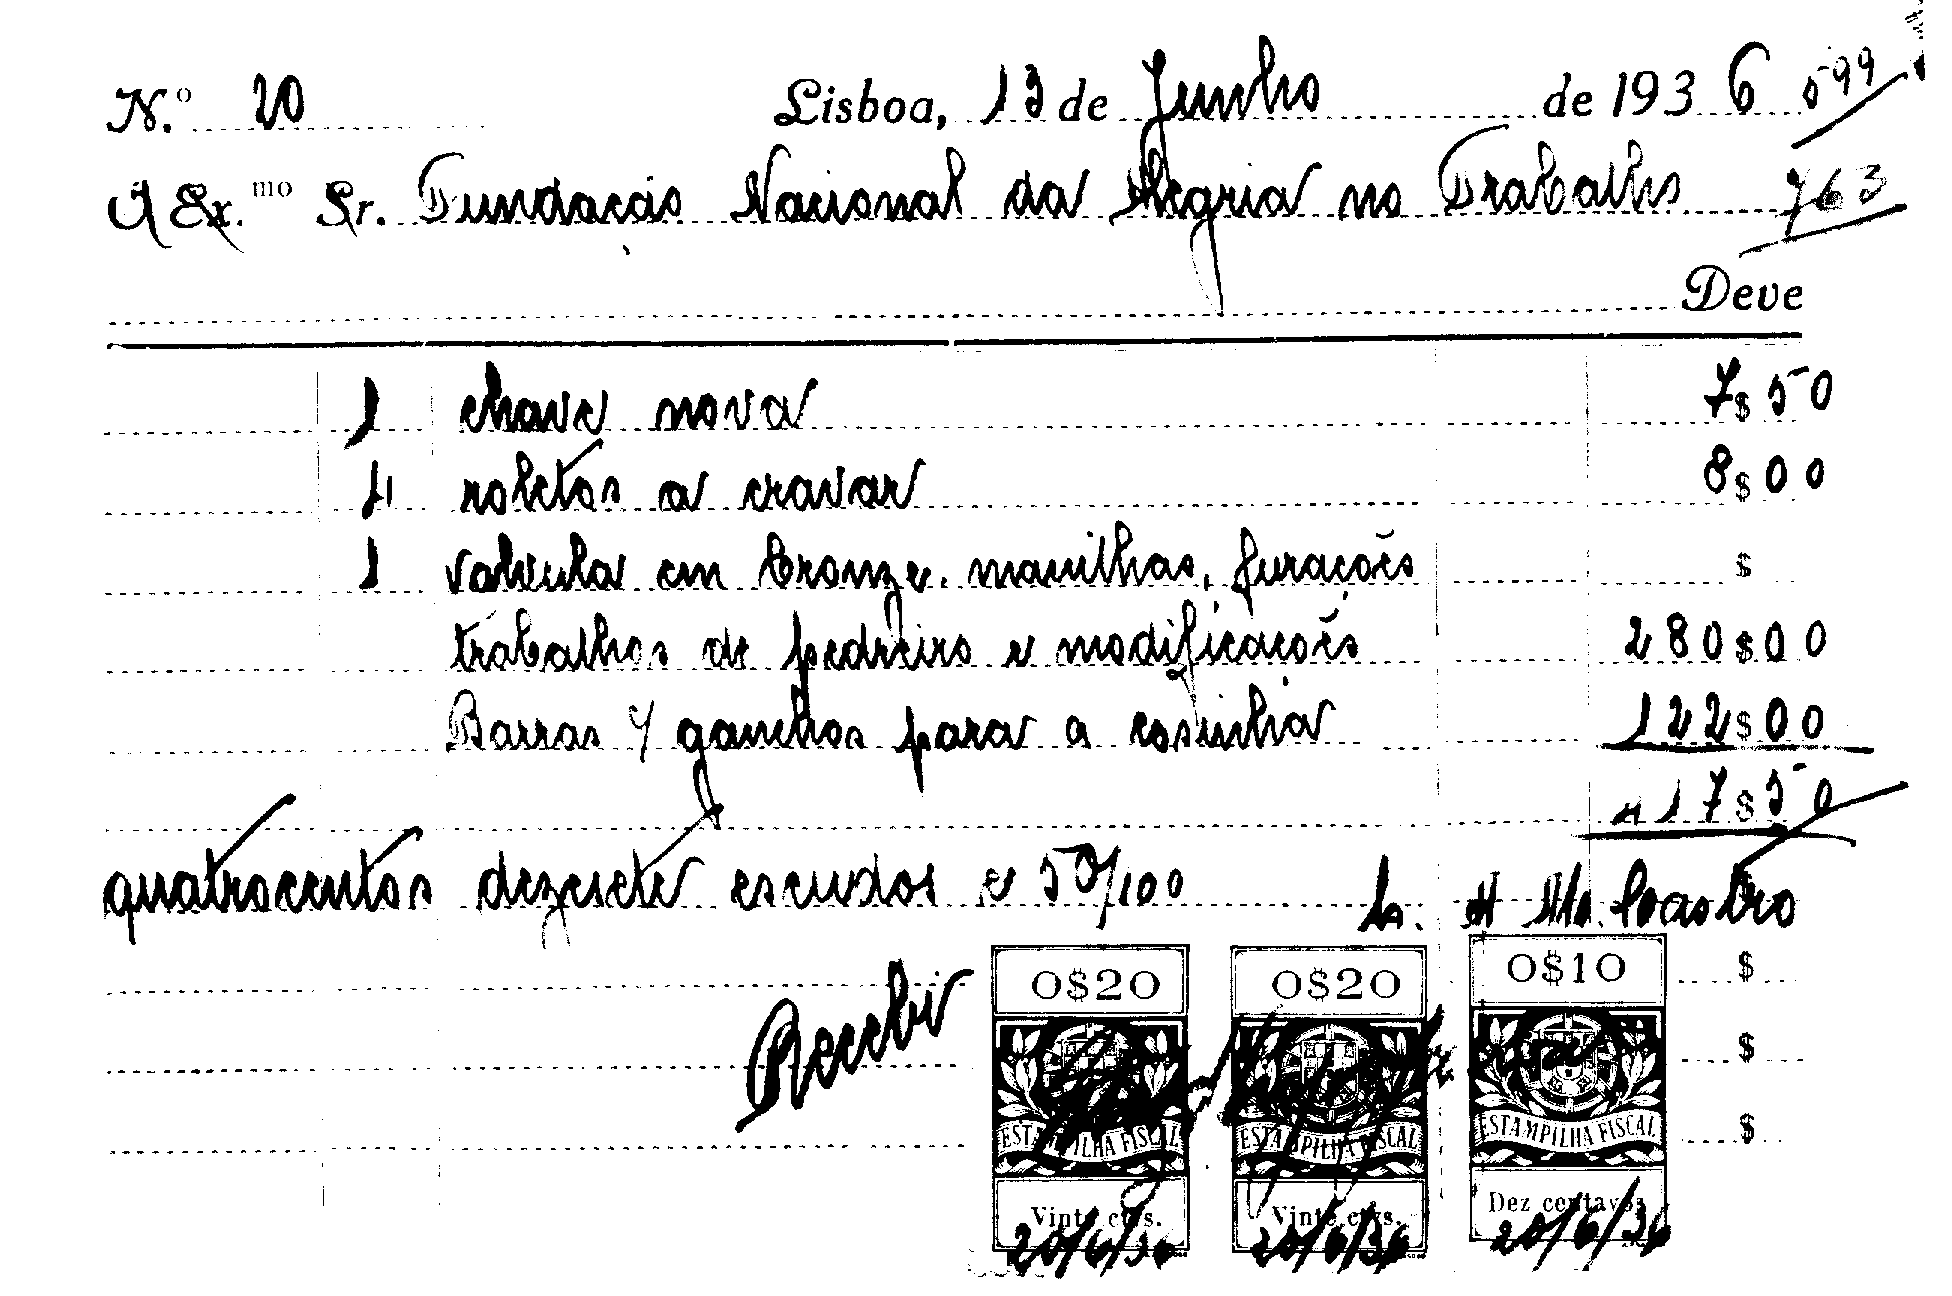 N.º 20 Lisboa, 13 de Junho de 1936 599
A Ex.mo Sr. Fundação Nacional da Alegria no Trabalho 763
Deve
1 chave nova 7$50
4 roletos a cravar 8$00
1 valvula em bronze. manilhas, furações $
trabalhos de pedreiro e modificações 280$00
Barras 4 ganchos para a cosinha 122$00
417$50
quatrocentos dezesete escudos e 50/100
Castro
0$20 0$20 0$10 $
Recebi
$
ESTAMPILHA FISCAL ESTAMPILHA FISCAL ESTAMPILHA FISCAL $
Vinte ctvs. Vinte ctvs. Dez centavos
20/6/36 20/6/36 20/6/36